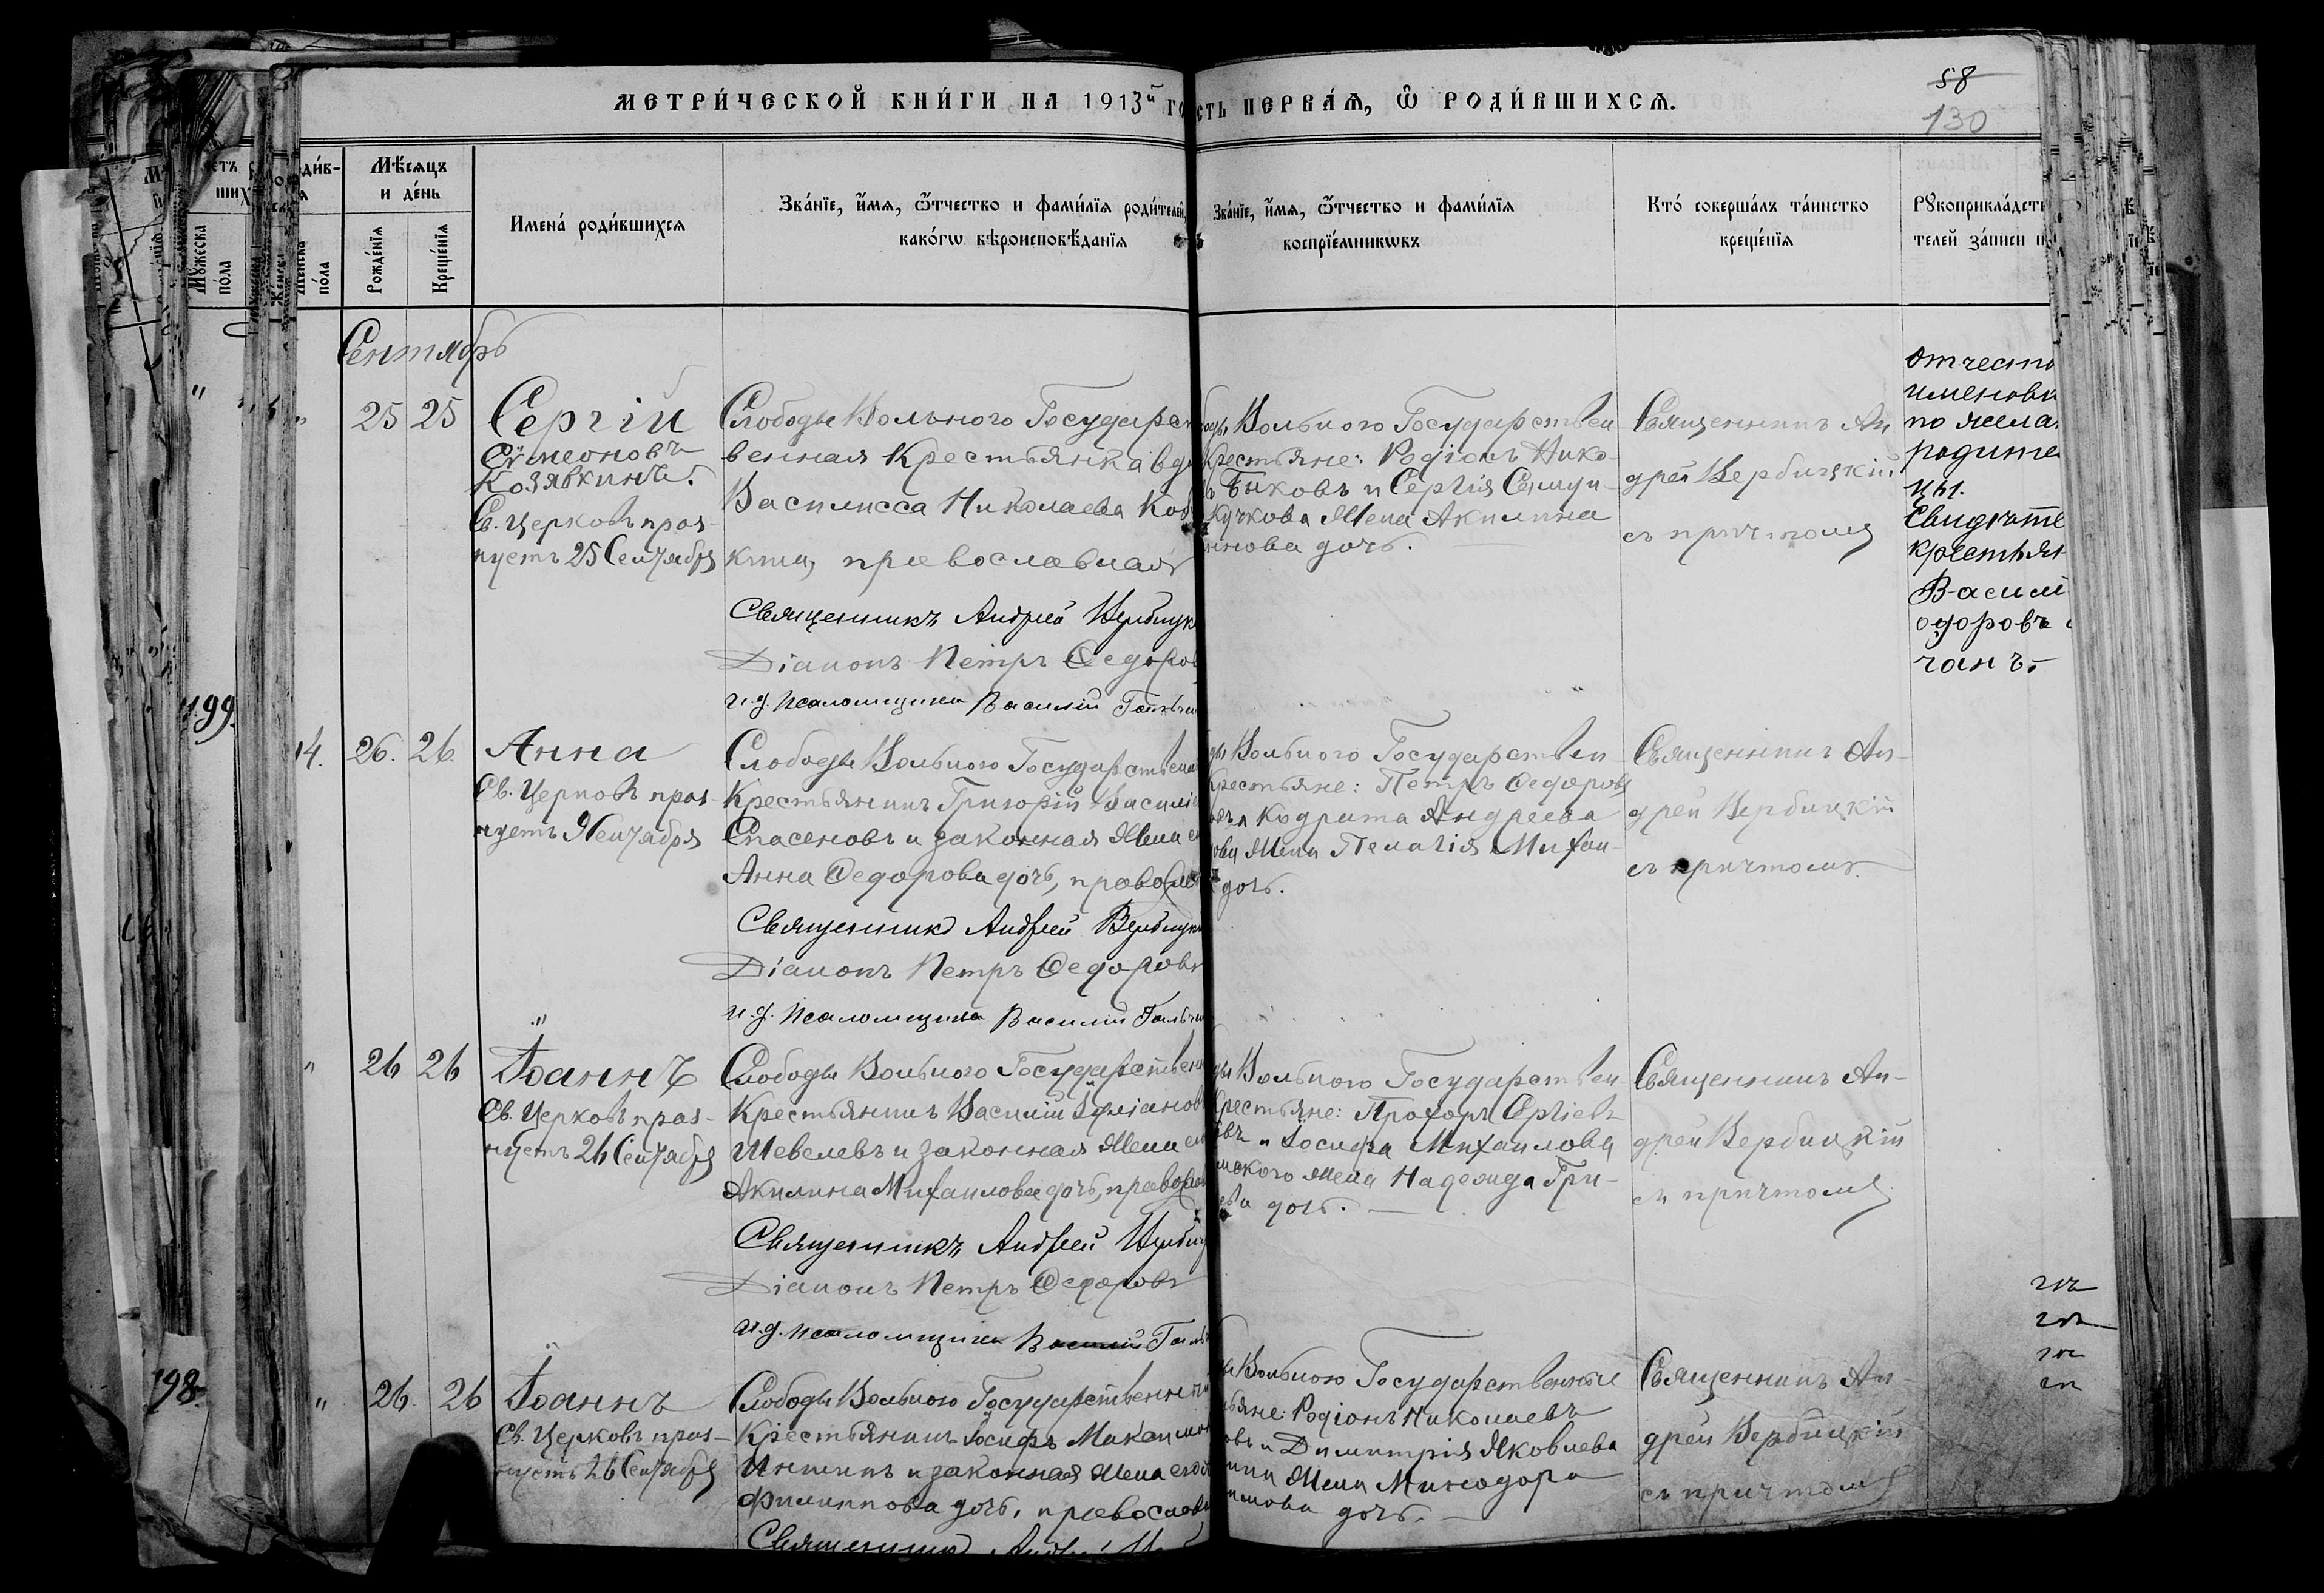 МЕТРИ́ЧЕСКОЙ КНИ́ГИ НА 1913й
СТЬ ПЕРВА́Ѧ, Ѿ РОДИ́ВШИХСѦ.
58
130
Мѣ́сѧцъ
и де́нь
Рожде́нїѧ
Креще́нїѧ
Му́жеска
по́ла
по́ла
Имена́ роди́вшихсѧ
Зва́нїе, и́мѧ, ѻ́тчество и фами́лїѧ роди́телей,
како́гѡ вѣроисповѣ́данїѧ
Зва́нїе, и́мѧ, ѻ́тчество и фами́лїѧ
воспрїе́мникѡвъ
Кто́ соверша́лъ та́инство
креще́нїѧ
Рꙋкоприкла́дст
телей за́писи
Сентябрь
25 25
Сергій
Сѵмеоновъ
Козявкинъ.
Св. Церковь праз-
нуетъ 25 Сентября
Слободы Вольного Государст
венная Крестьянка вдо
Василисса Николаева Коз
кина, православная
Священникъ Андрей Вербицк
Діаконъ Петръ Федоров
и.д. псаломщика Василій
Вольного Государствен
Крестьяне: Родіонъ Нико-
Быковъ и Сергія Самуи-
Кучкова жена Акилина
нова дочь.
Священникъ Ан
дрей Вербицкій
съ причтомъ
отчество
именова
по жела
родите
цы.
Свидѣте
крестьян
Васили
одоровъ
чанъ.
199.
14.
26. 26.
Анна
Св. Церковь праз-
нуетъ 9 Сентября
Слободы Вольного Государственн
Крестьянинъ Григорій Василі
Спасеновъ и законная жена е
Анна Федорова дочь, правосл
Священник Андрей Вербицк
Діаконъ Петръ Федоровъ
и.д. псаломщика Василій
Вольного Государствен
Крестьяне: Петръ Федоровъ
Кодрата Андреева
жена Пелагія Михаи-
дочь.
Священникъ Ан-
дрей Вербицкій
съ причтомъ.
26 26
Іоаннъ
Св. Церковь праз-
нуетъ 26 Сентября
Слободы Вольного Государствен
Крестьянинъ Василій Іуліанов
Шевелевъ и законная жена ег
Акилина Михаилова дочь, правосл
Священникъ Андрей Вербиц
Діаконъ Петръ Федоровъ
и.д. псаломщика Василій
Вольного Государствен
Крестьяне: Прохоръ Сергіевъ
и Іосифа Михаилова
жена Надежда Гри-
дочь.
Священникъ Ан-
дрей Вербицкій
съ причтомъ
198.
26. 26
Іоаннъ
Св. Церковь праз-
нуетъ 26 Сентября
Слободы Вольного Государственный
Крестьянинъ Іосифъ Максимов
и законная жена его
Филиппова дочь, православн
Вольного Государственные
Родіонъ Николаевъ
и Димитрія Яковлева
жена Минодора
дочь.
Священникъ Ан-
дрей Вербицкій
съ причтомъ